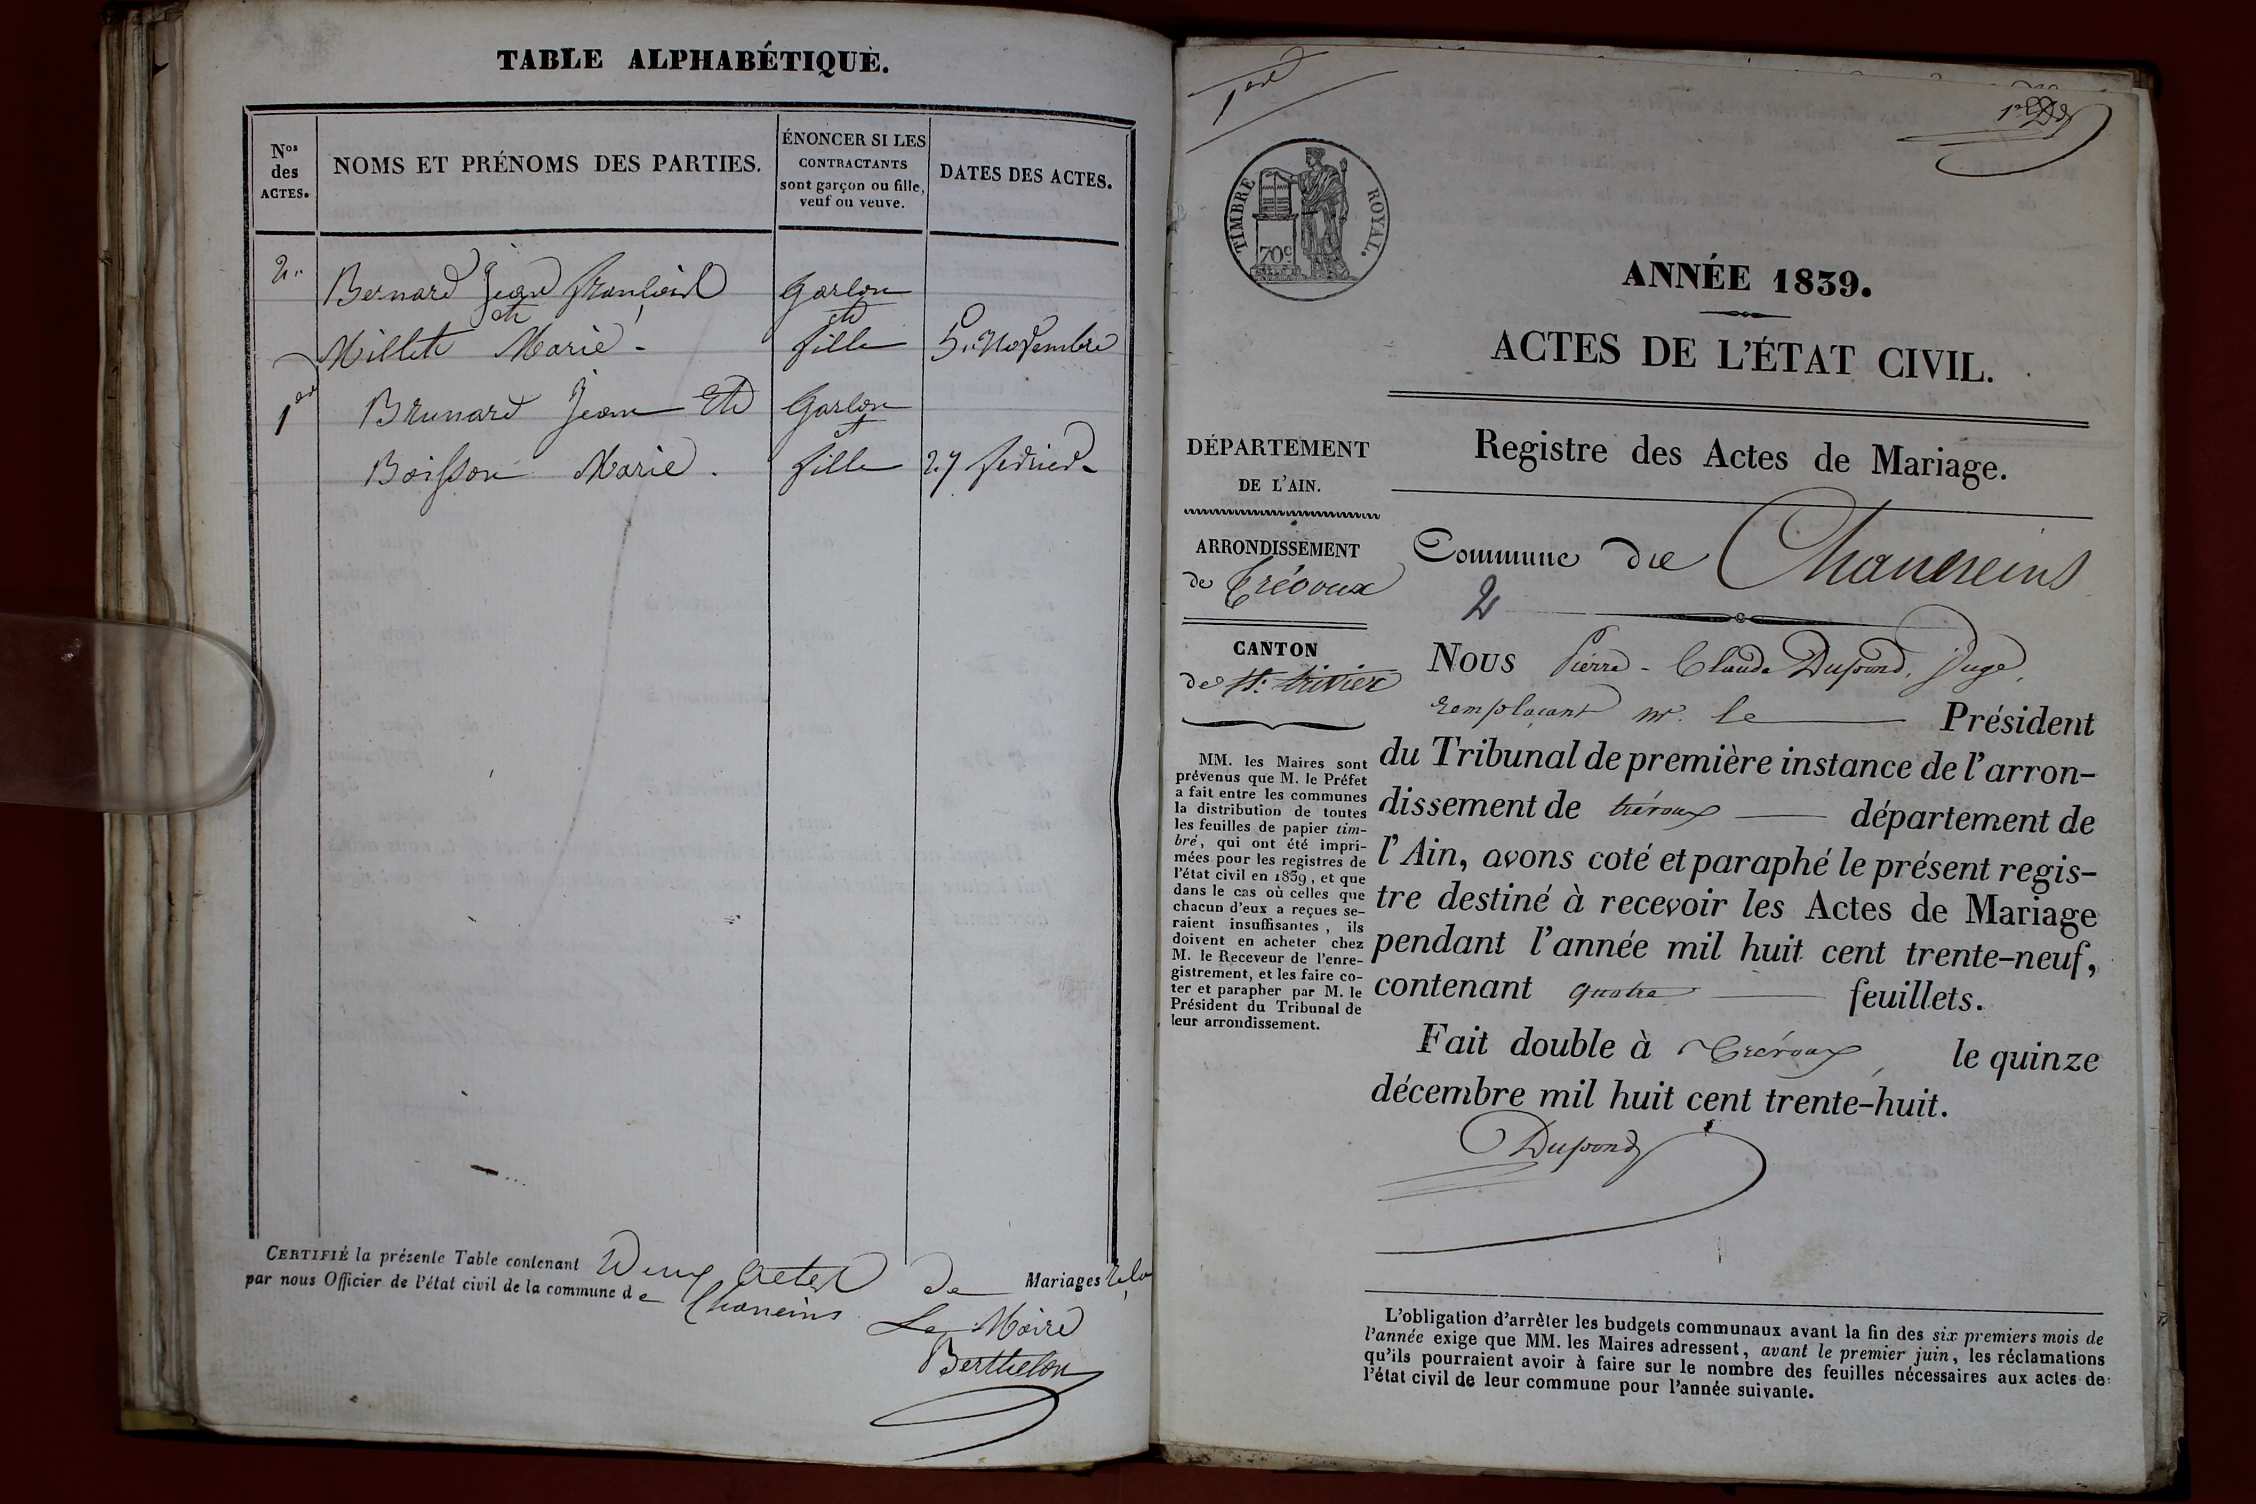 TABLE ALPHABÉTIQUE.
Nos des ACTES.
NOMS ET PRÉNOMS DES PARTIES.
ÉNONCER SI LES
CONTRACTANTS
sont garçon ou fille,
veuf ou veuve.
DATES DES ACTES.
2. Bernard Jean françois Garçon
et et
Millet Marie - fille 5. Novembre
1er Brunard Jean et Garçon
et
Boisson Marie. fille 27 fevrier
CERTIFIÉ la présente Table contenant Deux actes de Mariages
par nous Officier de l'état civil de la commune de Chaneins
Le Maire
Berthelon
1er
TIMBRE ROYAL.
70c
ANNÉE 1839.
ACTES DE L'ÉTAT CIVIL.
Registre des Actes de Mariage.
DÉPARTEMENT
DE L'AIN.
ARRONDISSEMENT
de Trévoux
CANTON
de St. trivier
MM. les Maires sont
prévenus que M. le Préfet
a fait entre les communes
la distribution de toutes
les feuilles de papier tim-
bré, qui ont été impri-
mées pour les registres de
l'état civil en 1839, et que
dans le cas où celles que
chacun d'eux a reçues se-
raient insuffisantes, ils
doivent en acheter chez
M. le Receveur de l'enre-
gistrement, et les faire co-
ter et parapher par M. le
Président du Tribunal de
leur arrondissement.
Commune de Chaneins
2
Nous Pierre-Claude Dupond, Juge,
remplaçant mr. le Président
du Tribunal de première instance de l'arron-
dissement de trévoux département de
l'Ain, avons coté et paraphé le présent regis-
tre destiné à recevoir les Actes de Mariage
pendant l'année mil huit cent trente-neuf,
contenant quatre feuillets.
Fait double à Trévoux, le quinze
décembre mil huit cent trente-huit.
Dupond
L'obligation d'arrêter les budgets communaux avant la fin des six premiers mois de
l'année exige que MM. les Maires adressent, avant le premier juin, les réclamations
qu'ils pourraient avoir à faire sur le nombre des feuilles nécessaires aux actes de
l'état civil de leur commune pour l'année suivante.